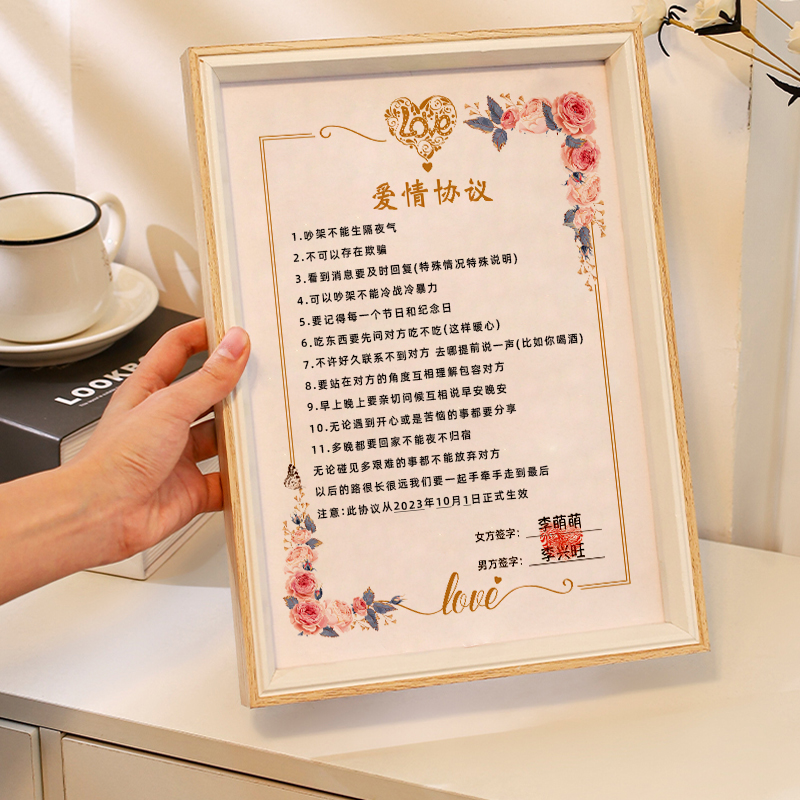 Love
爱情协议
1.吵架不能生隔夜气
2.不可以存在欺骗
3.看到消息要及时回复(特殊情况特殊说明)
4.可以吵架不能冷战冷暴力
5.要记得每一个节日和纪念日
6.吃东西要先问对方吃不吃(这样暖心)
7.不许好久联系不到对方 去哪提前说一声(比如你喝酒)
8.要站在对方的角度互相理解包容对方
9.早上晚上要亲切问候互相说早安晚安
10.无论遇到开心或是苦恼的事都要分享
11.多晚都要回家不能夜不归宿
无论碰见多艰难的事都不能放弃对方
以后的路很长很远我们要一起手牵手走到最后
注意:此协议从2023年10月1日正式生效
女方签字: 李萌萌
男方签字: 李兴旺
love
LOOKB